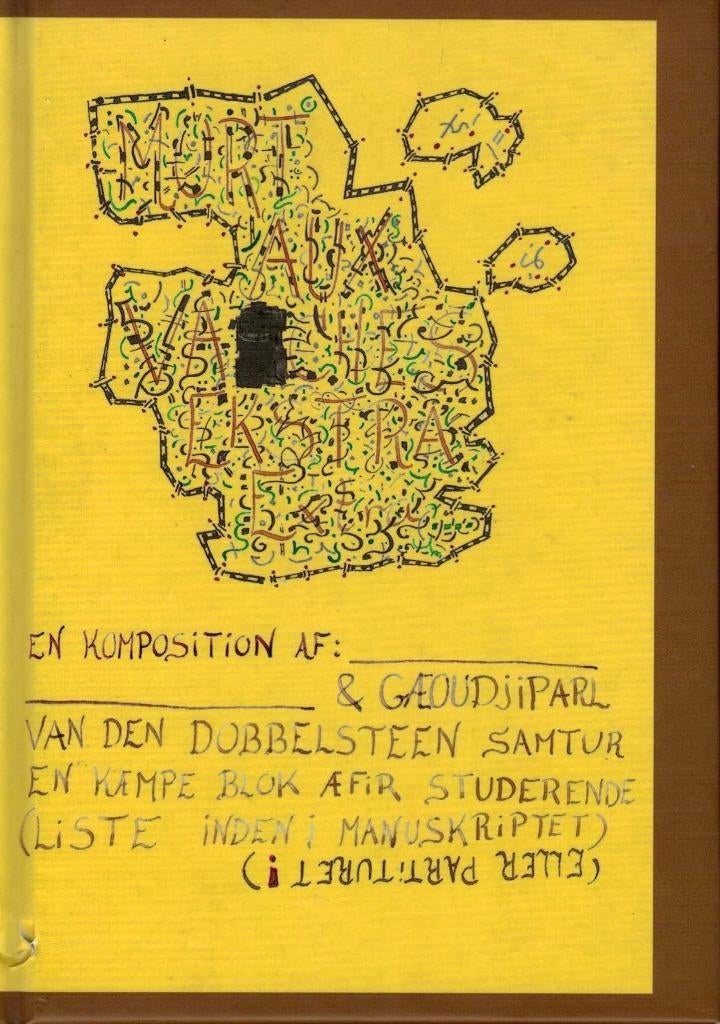 MORT
AUX
VA CHES
EKSTRA
Extra
EN KOMPOSITION AF:
& GÆOUDJiPARL
VAN DEN DOBBELSTEEN SAMTUR
EN KÆMPE BLOK ÆFiR STUDERENDE
(LiSTE iNDEN i MANUSKRiPTET)
(ELLER PARTiTURET i)